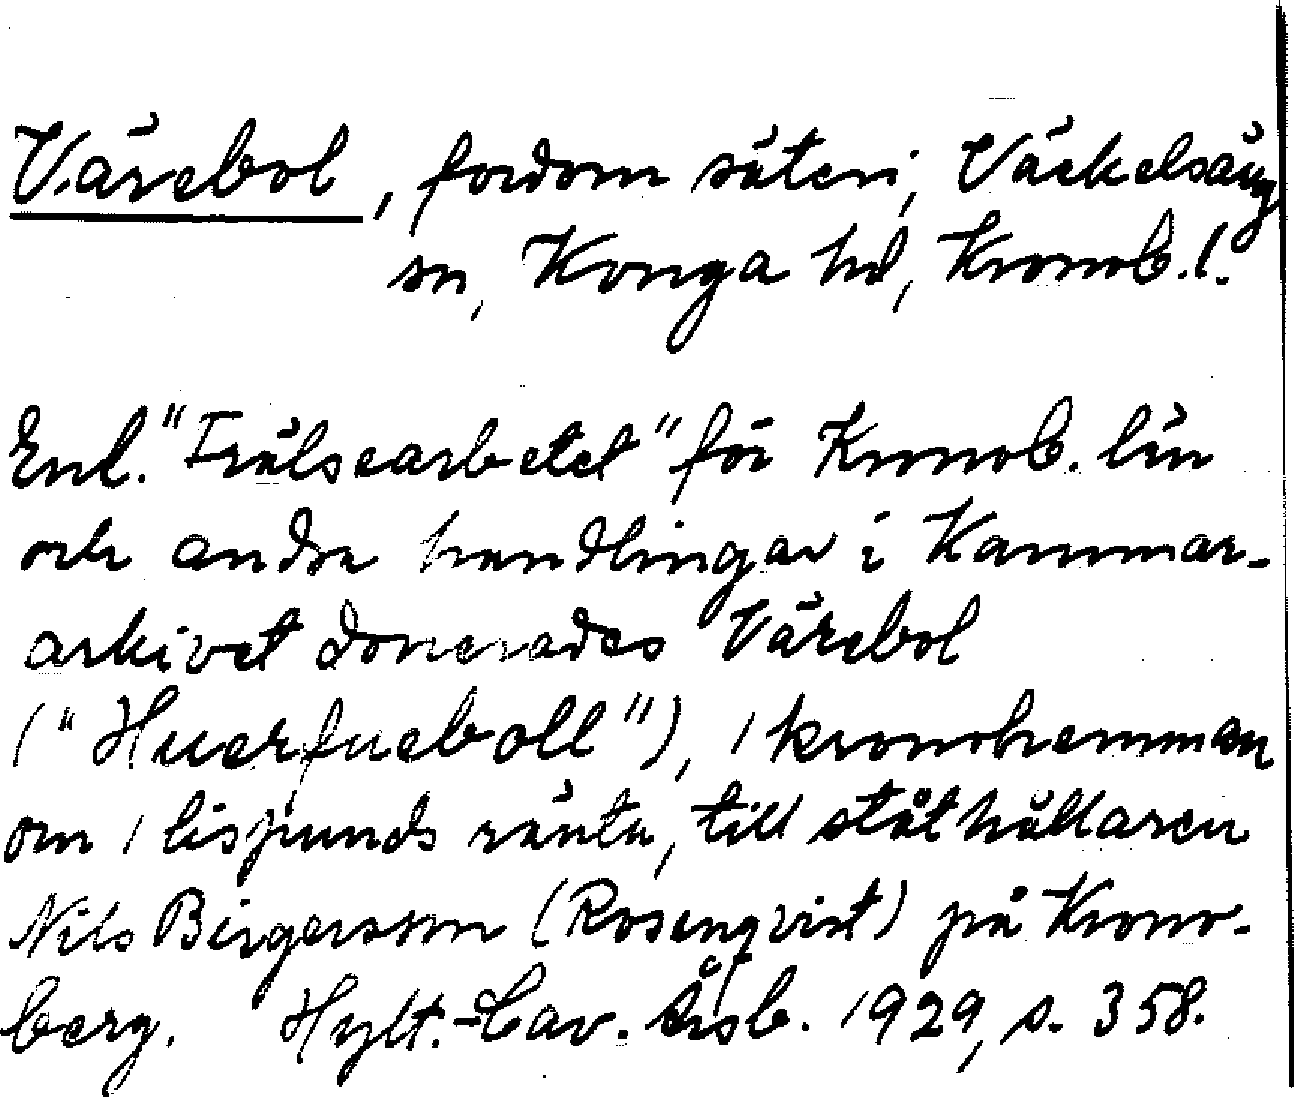 Värebol, fordom säteri, Väckelsång
sn, Konga hd, Kronob. l.
Enl. "Frälsearbetet" för Kronob. län
och andra handlingar i Kammar-
arkivet donerades Värebol
("Huerfueboll"), 1 kronohemman
om 1 lispunds ränta, till ståthållaren
Nils Birgersson (Rosenqvist) på Krono-
berg. Hylt.-Cav. Årsb. 1929, s. 358.